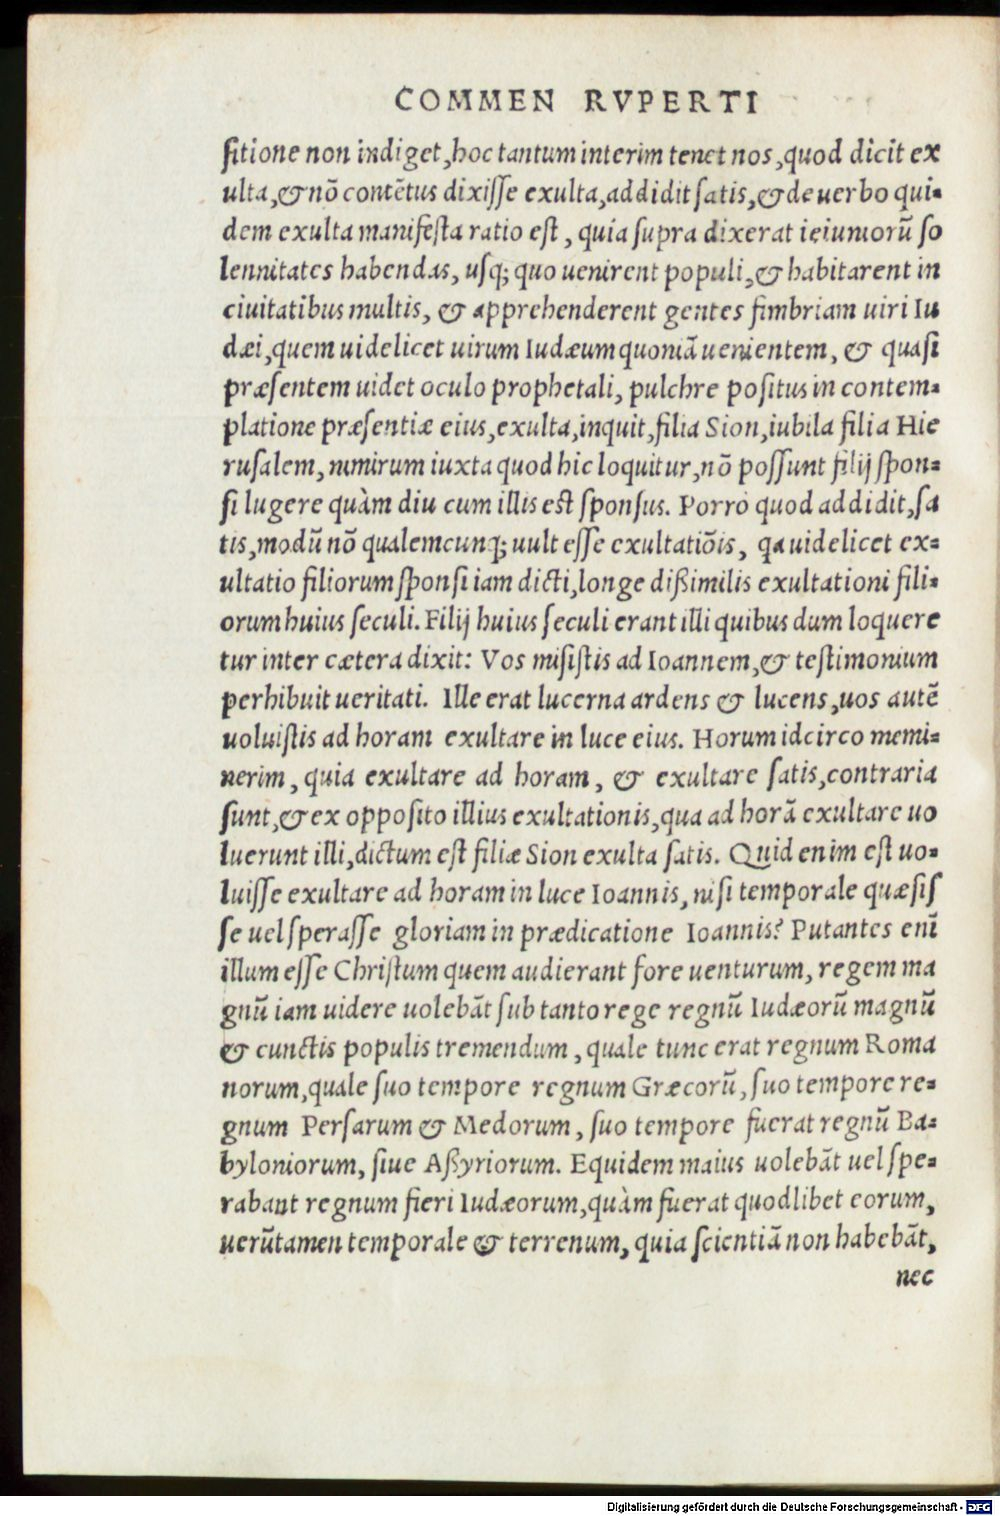 COMMEN RVPERTI
sitione non indiget, hoc tantum interim tenet nos, quod dicit ex
ulta, & nõ contẽtus dixisse exulta, addidit satis, & de uerbo qui-
dem exulta manifesta ratio est, quia supra dixerat ieiuniorũ so
lennitates habendas, usq; quo uenirent populi, & habitarent in
ciuitatibus multis, & apprehenderent gentes fimbriam uiri Iu
dæi, quem uidelicet uirum Iudæum quoniã uenientem, & quasi
præsentem uidet oculo prophetali, pulchre positus in contem-
platione præsentiæ eius, exulta, inquit, filia Sion, iubila filia Hie
rusalem, nimirum iuxta quod hic loquitur, nõ possunt filij spon-
si lugere quàm diu cum illis est sponsus. Porro quod addidit, sa
tis, modũ nõ qualemcunq; uult esse exultatiõis, qa uidelicet ex-
ultatio filiorum sponsi iam dicti, longe dißimilis exultationi fili-
orum huius seculi. Filij huius seculi erant illi quibus dum loquere
tur inter cætera dixit: Vos misistis ad Ioannem, & testimonium
perhibuit ueritati. Ille erat lucerna ardens & lucens, uos autẽ
uoluistis ad horam exultare in luce eius. Horum idcirco memi-
nerim, quia exultare ad horam, & exultare satis, contraria
sunt, & ex opposito illius exultationis, qua ad horã exultare uo
luerunt illi, dictum est filiæ Sion exulta satis. Quid enim est uo-
luisse exultare ad horam in luce Ioannis, nisi temporale quæsis
se uel sperasse gloriam in prædicatione Ioannis? Putantes enĩ
illum esse Christum quem audierant fore uenturum, regem ma
gnũ iam uidere uolebãt sub tanto rege regnũ Iudæorũ magnũ
& cunctis populis tremendum, quale tunc erat regnum Roma
norum, quale suo tempore regnum Græcorũ, suo tempore re-
gnum Persarum & Medorum, suo tempore fuerat regnũ Ba-
byloniorum, siue Aßyriorum. Equidem maius uolebãt uel spe-
rabant regnum fieri Iudæorum, quàm fuerat quodlibet eorum,
uerũtamen temporale & terrenum, quia scientiã non habebãt,
nec
Digitalisierung gefördert durch die Deutsche Forschungsgemeinschaft - DFG